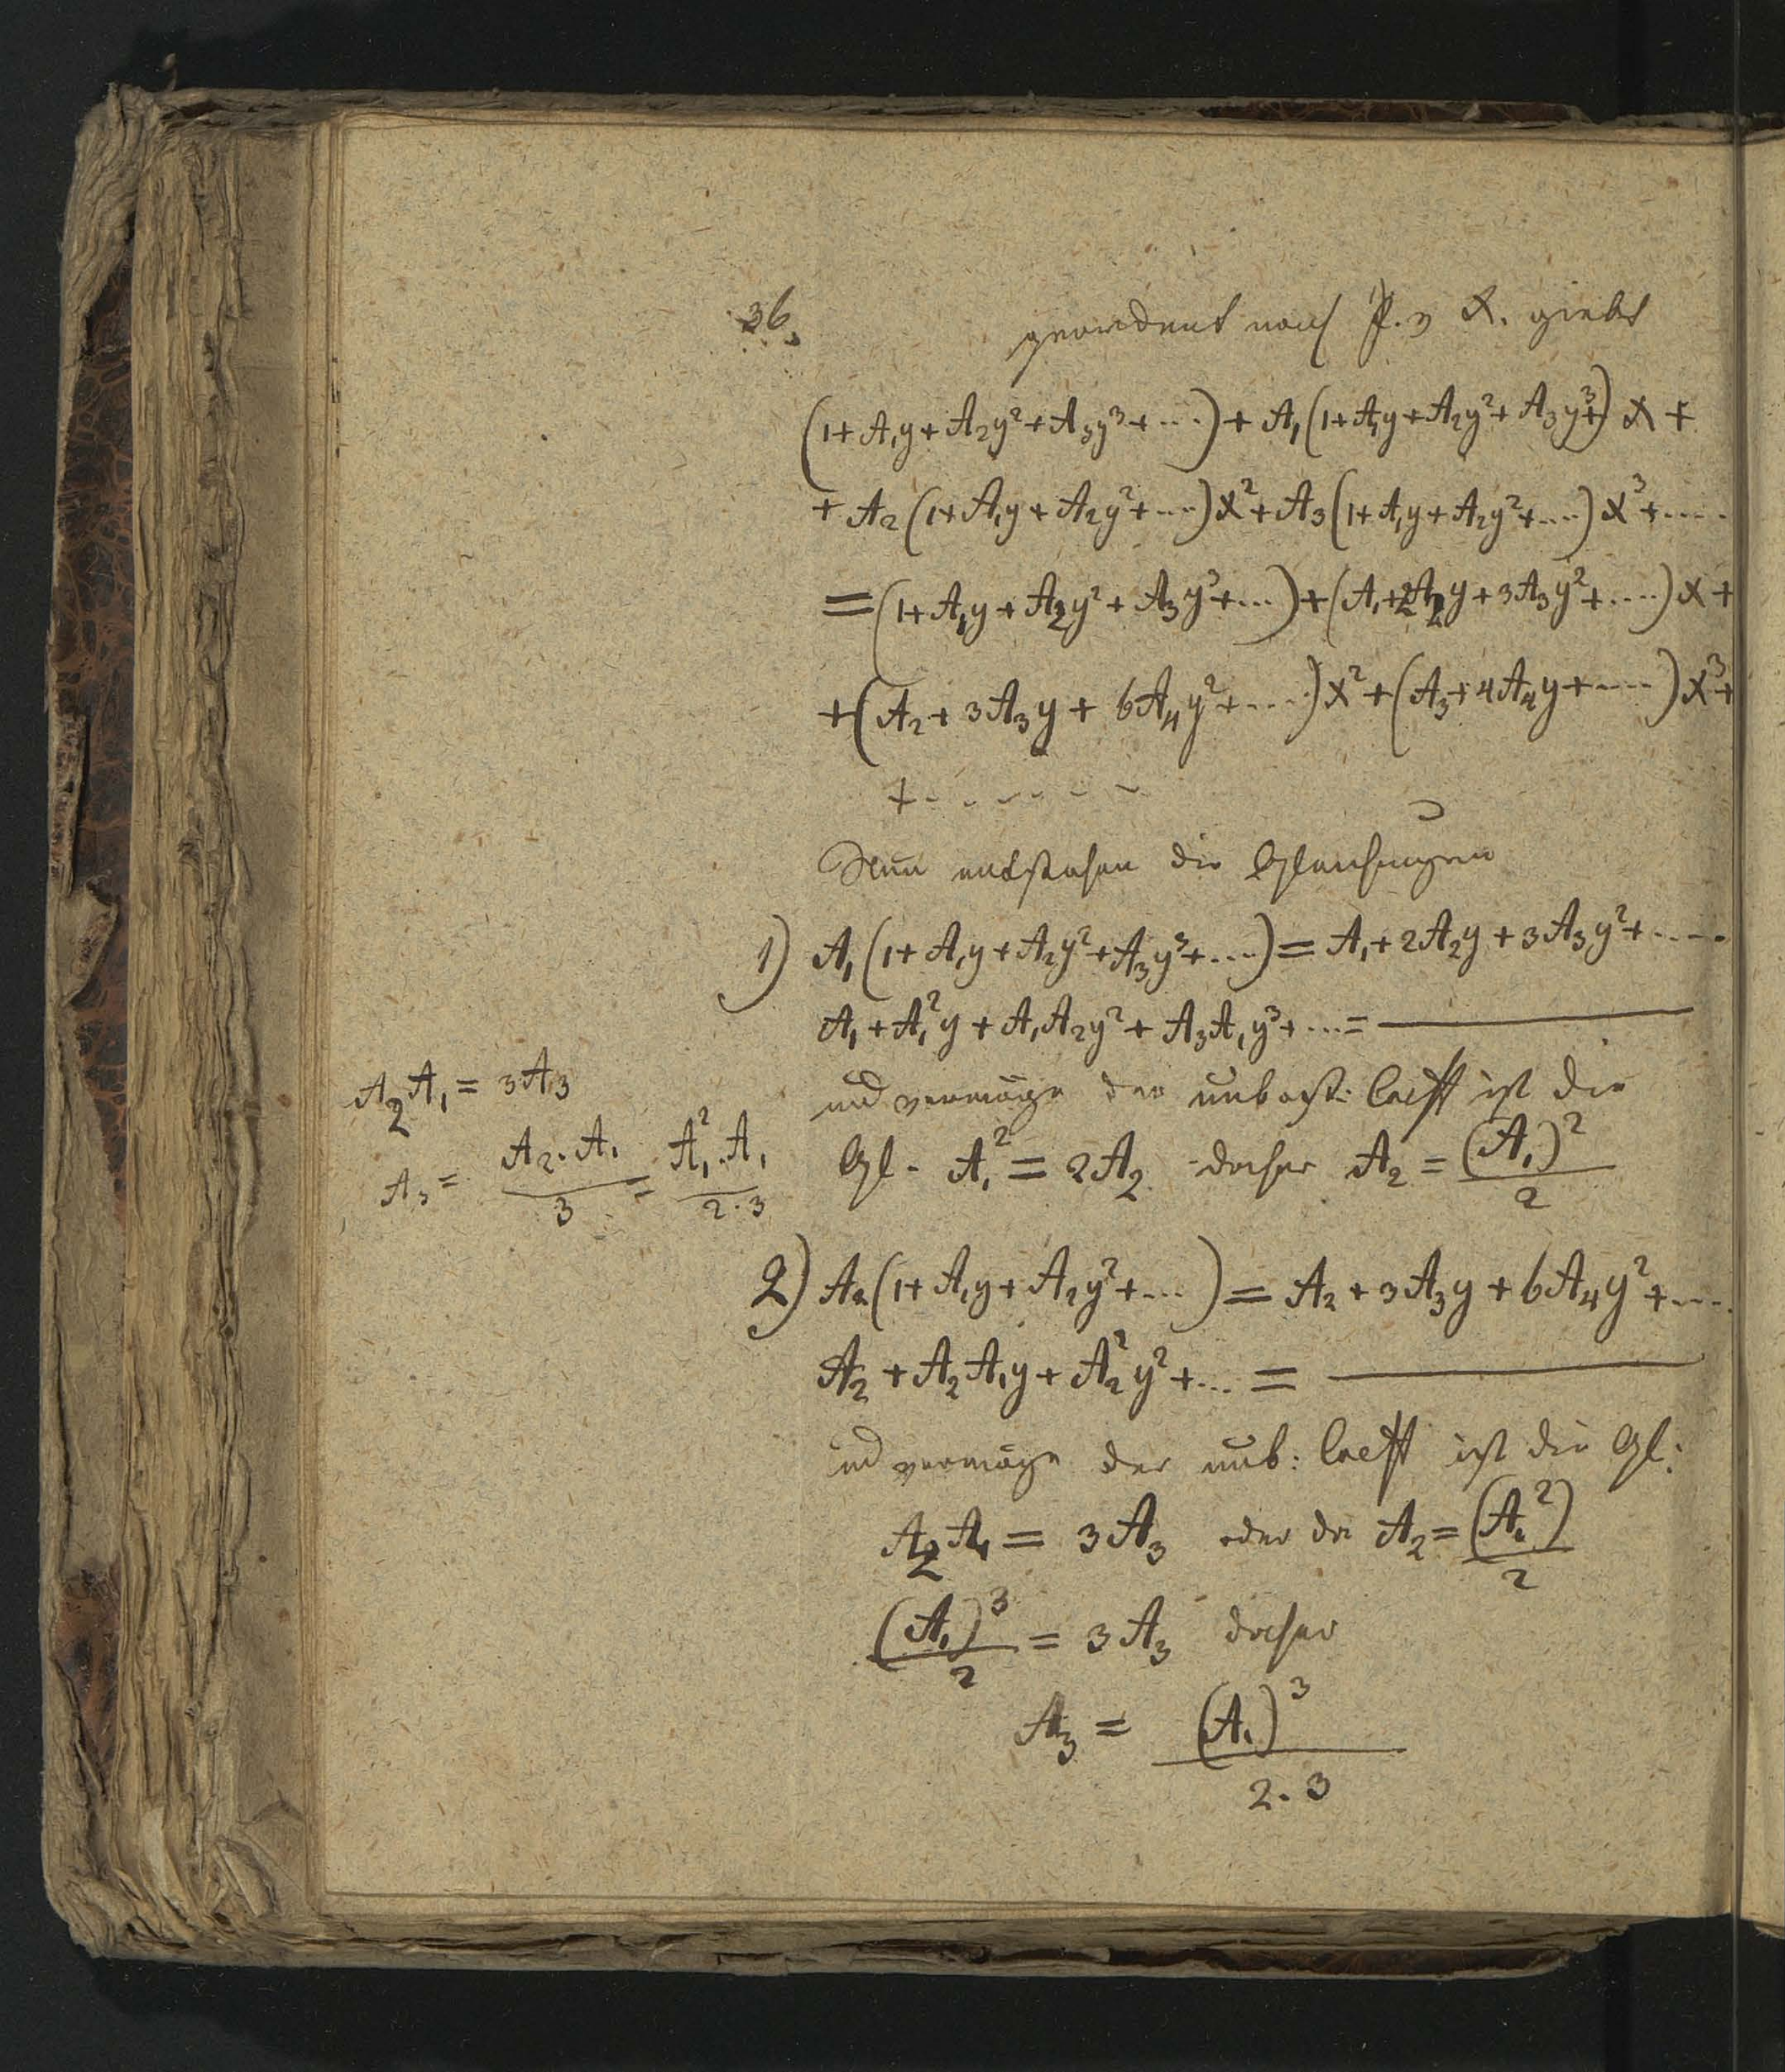 36.
geordnet nach P. v x. giebt
(1+A₁y+A₂y²+A₃y³+....)+A₁(1+A₁y+A₂y²+A₃y³+)x+
+A₂(1+A₁y+A₂y²+....)x²+A₃(1+A₁y+A₂y²+....)x³+.....
=(1+A₁y+A₂y²+A₃y³+....)+(A₁+2A₂y+3A₃y²+.....)x+
+(A₂+3A₃y+6A₄y²+....)x²+(A₃+4A₄y+.....)x³+
+ - - - - - -
Nun entstehen die Gleichungen
1) A₁(1+A₁y+A₂y²+A₃y³+....)=A₁+2A₂y+3A₃y²+.....
A₁+A₁²y+A₁A₂y²+A₃A₁y³+...=————
und vermöge der unbest: Coeff ist die
Gl. A₁²=2A₂ daher A₂=(A₁)²/2
A₂A₁=3A₃
A₃=A₂.A₁/3=A₁².A₁/2.3
2) A₂(1+A₁y+A₂y²+...)=A₂+3A₃y+6A₄y²+....
A₂+A₂A₁y+A₂²y²+...=————
und vermöge der unb: Coeff ist die Gl:
A₂A₁=3A₃ oder da A₂=(A₁²)/2
(A₁)³/2=3A₃ daher
A₃=(A₁)³/2.3